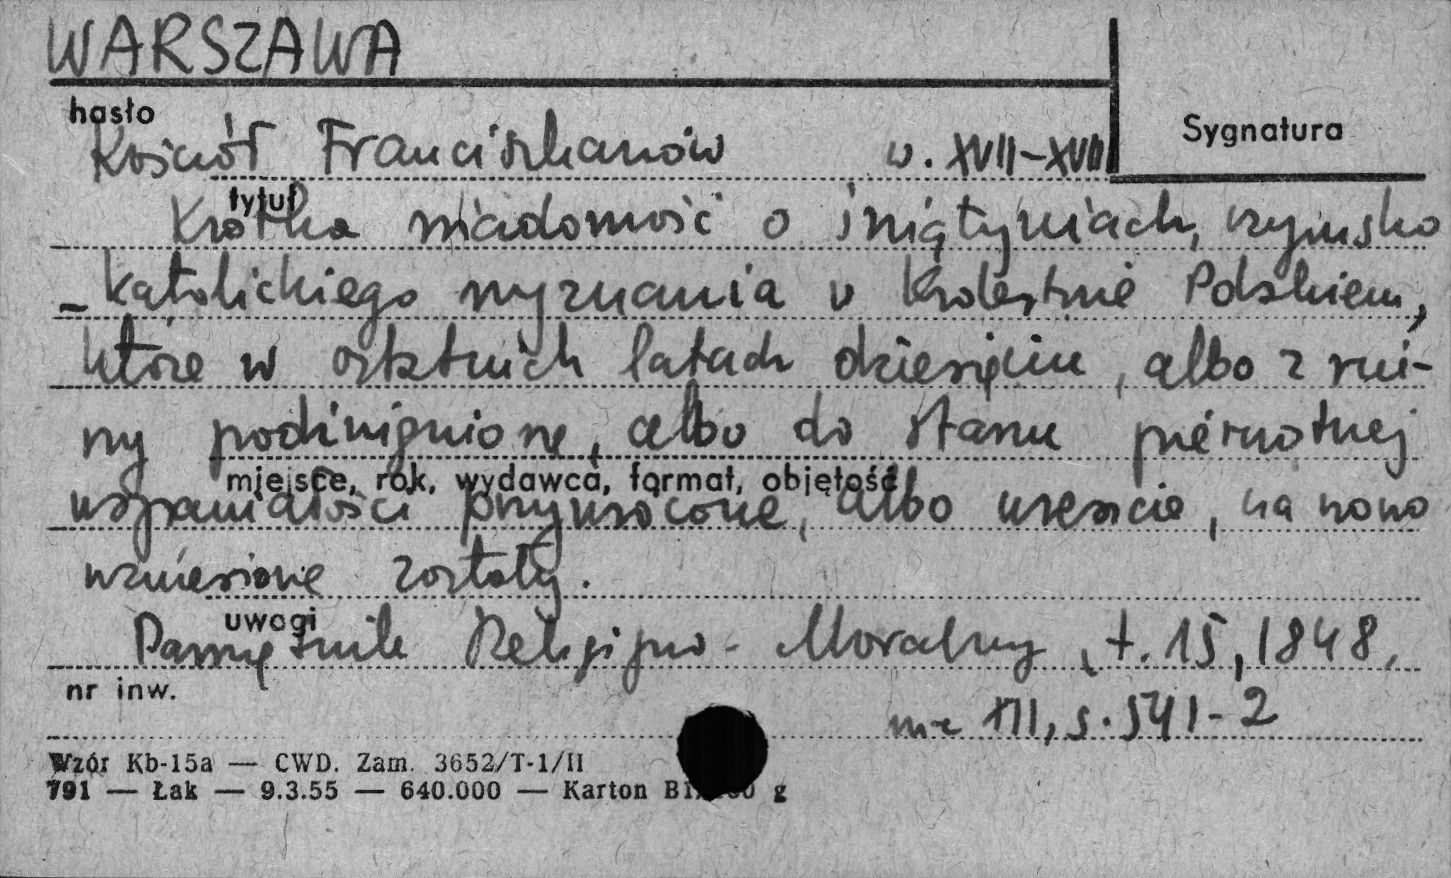 WARSZAWA
hasło
Sygnatura
Kościół Franciszkanów w. XVII-XVIII
tytuł
Krótka wiadomość o świątyniach, rzymsko
- katolickiego wyznania w Królestwie Polskiem,
które w ostatnich latach dziesięciu, albo z rui-
ny podźwignione, albo do stanu pierwotnej
miejsce, rok, wydawca, format, objętość
wspaniałości przywrócone, albo wreszcie, na nowo
wzniesione zostały.
uwagi
Pamiętnik Religijno - Moralny, t. 15, 1848,
nr inw.
nr XII, s. 541-2
Wzór Kb-15a — CWD. Zam. 3652/T-1/II
791 — Łak — 9.3.55 — 640.000 — Karton g